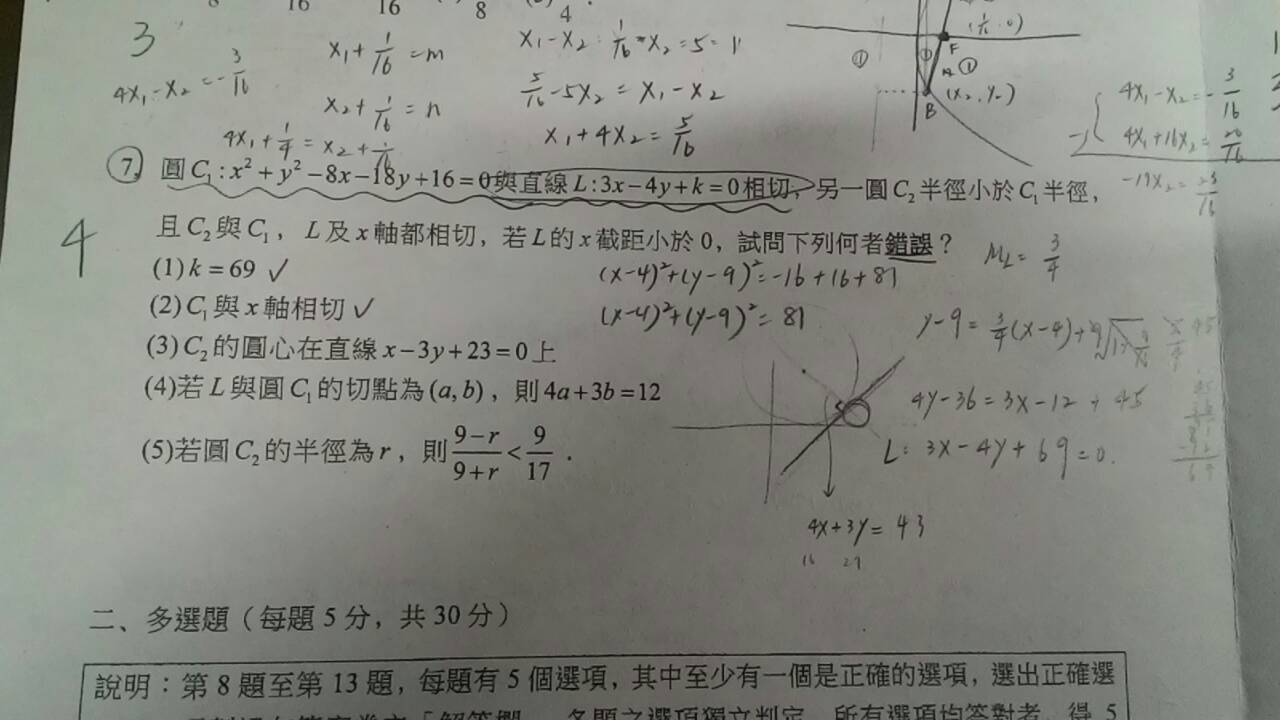 8 16 16 8 4
3
4x₁-x₂=-3/16
x₁+1/16=m
x₂+1/16=n
4x₁+1/4=x₂+1/16
x₁-x₂:1/16-x₂=5=11
5/16-5x₂=x₁-x₂
x₁+4x₂=5/16
F
①
①
(x₂,y₂)
B
4x₁-x₂=-3/16
4x₁+16x₂=20/16
-17x₂=-23/16
⑦. 圓C₁:x²+y²-8x-18y+16=0與直線L:3x-4y+k=0相切,另一圓C₂半徑小於C₁半徑,
4
且C₂與C₁,L及x軸都相切,若L的x截距小於0,試問下列何者錯誤?
(1)k=69 ✓
(2)C₁與x軸相切✓
(3)C₂的圓心在直線x-3y+23=0上
(4)若L與圓C₁的切點為(a,b),則4a+3b=12
(5)若圓C₂的半徑為r,則(9-r)/(9+r)<9/17.
(x-4)²+(y-9)²=-16+16+81
(x-4)²+(y-9)²=81
M_L=3/4
y-9=3/4(x-4)+
4y-36=3x-12+45
L:3x-4y+69=0.
4x+3y=43
16 27
二、多選題(每題5分,共30分)
說明:第8題至第13題,每題有5個選項,其中至少有一個是正確的選項,選出正確選
各題之選項獨立判定,所有選項均答對者,得5